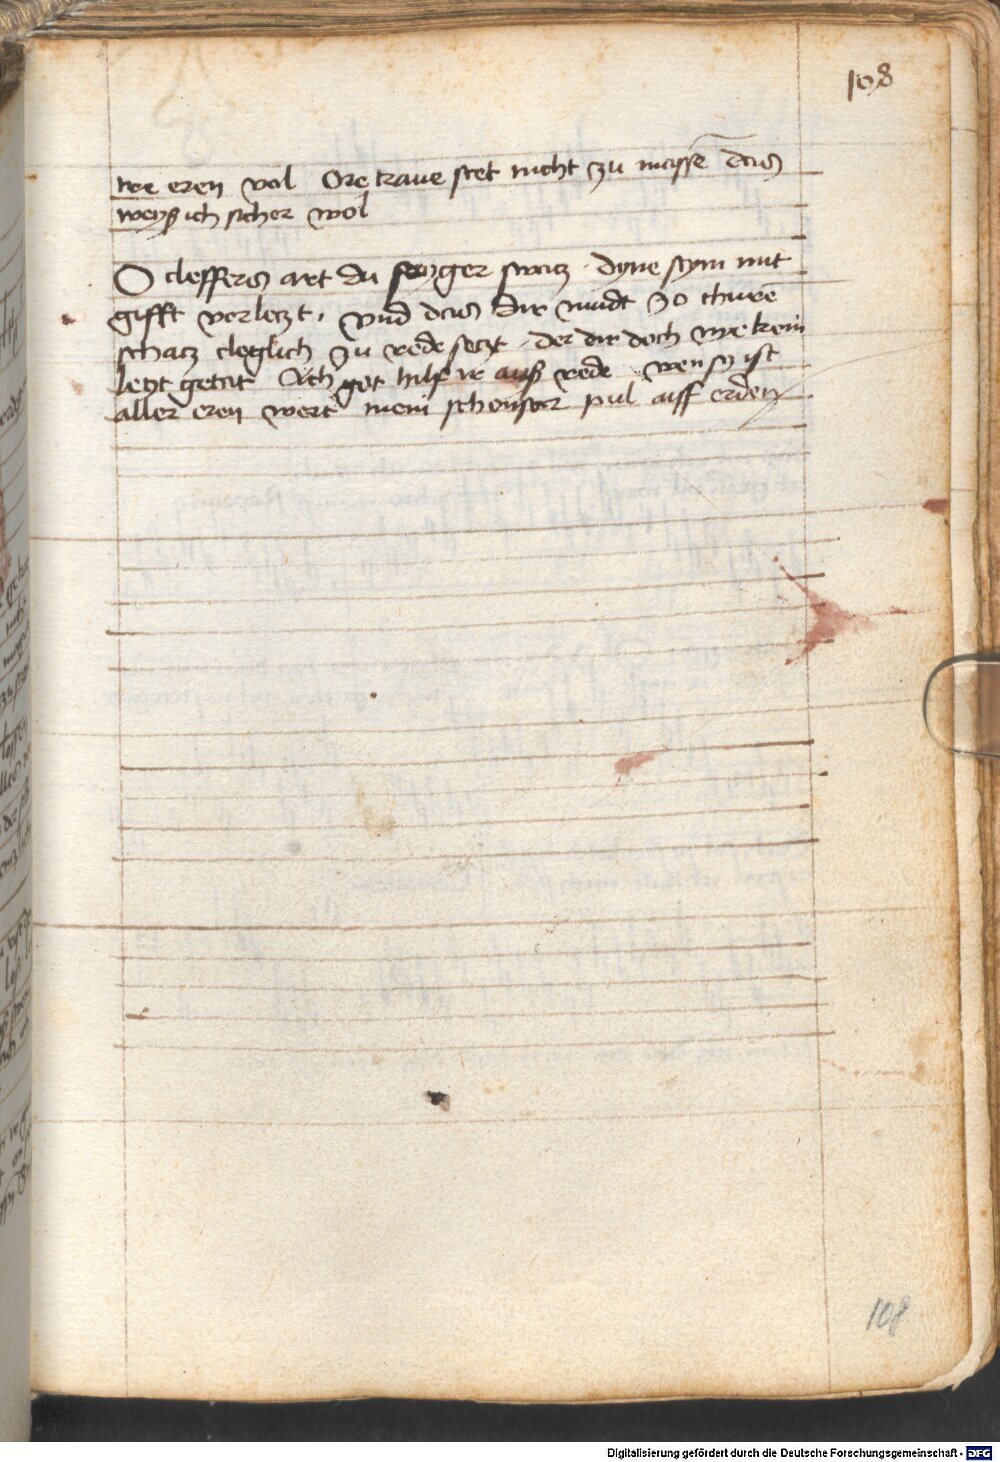 108
tre eren vol Ore traue stet nicht zu massē das
weyß ich sicher wol
O cleffers art du swatz · dyne stym mit
gifft vorletzt, vnd das dir mūdt so thurē
schatz cleglich zu rede setzt · der dir doch nye kein
leyt getat Ach got hilf ir auß rede wen sy ist
aller eren wert mein schonster pul auff erden
108
Digitalisierung gefördert durch die Deutsche Forschungsgemeinschaft - DFG